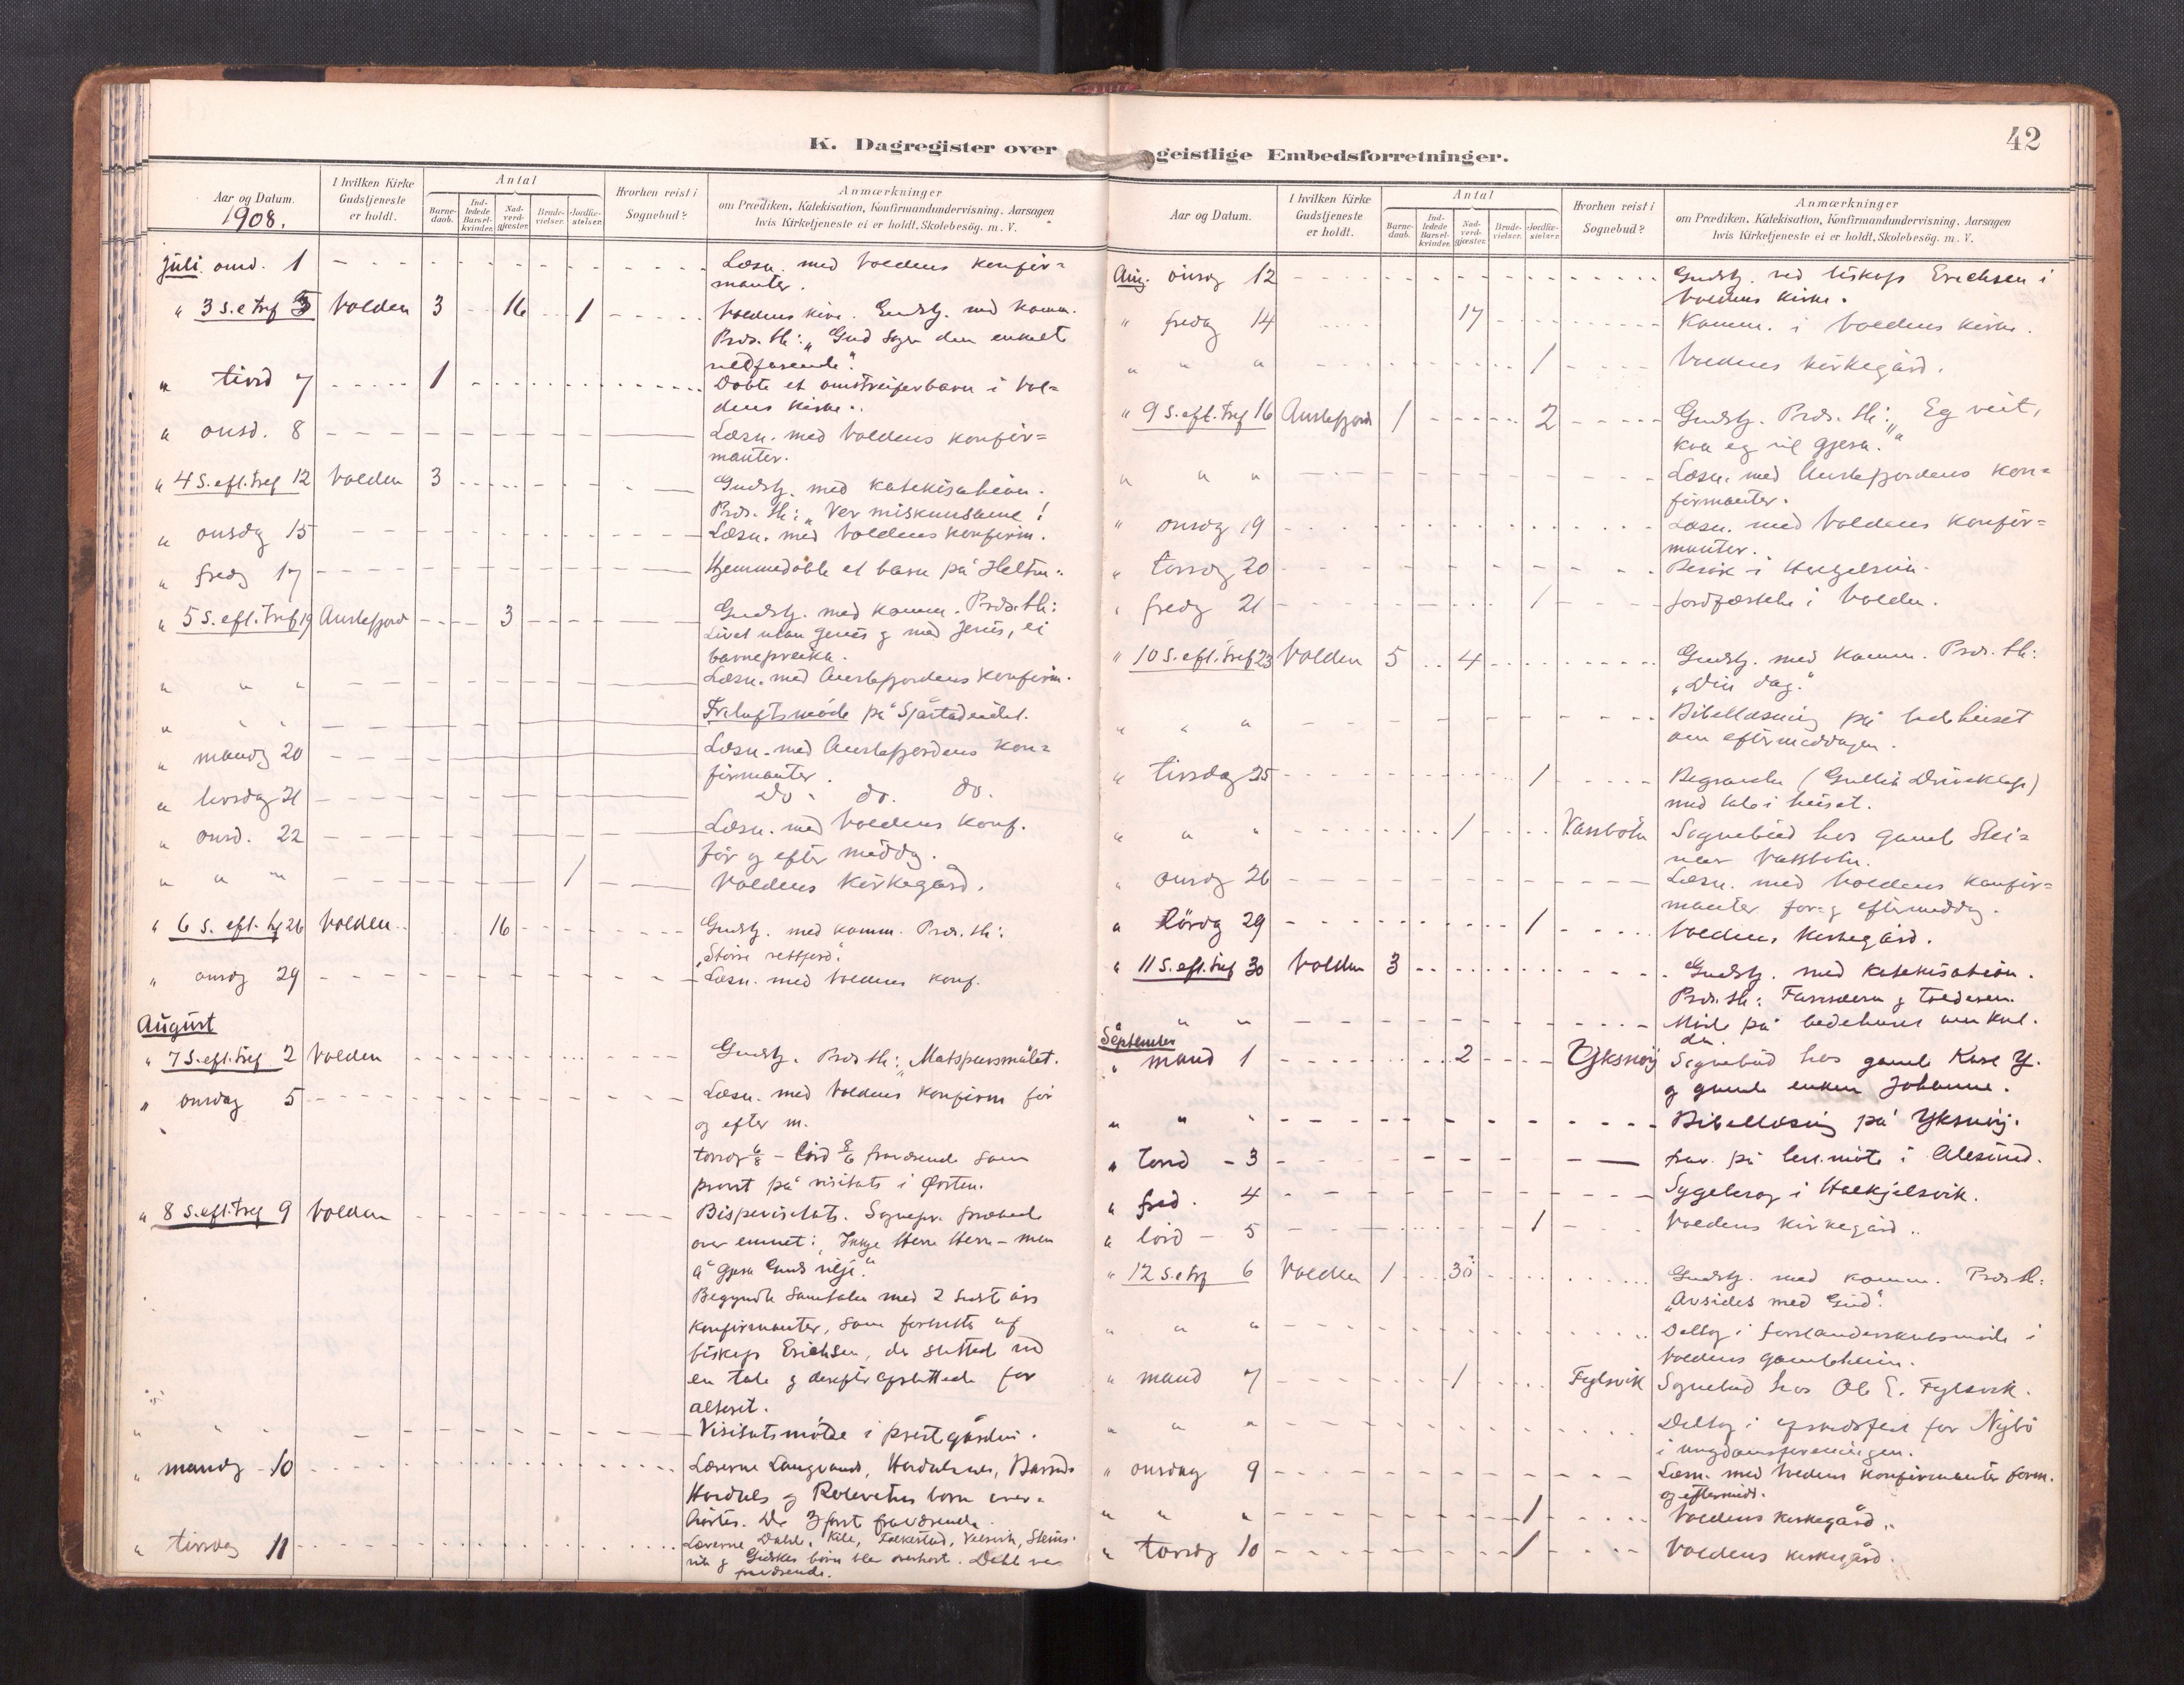 42
K. Dagregister over geistlige Embedsforretninger.
Aar og Datum.
1908.
I hvilken Kirke Gudstjeneste er holdt.
Antal
Barne-daab.
Ind-ledede Barsel-kvinder.
Nad-verd-gjæster.
Brude-vielser.
Jordfæ-stelser.
Hvorhen reist i Sognebud?
Anmærkninger
om Prædiken, Katekisation, Konfirmandundervisning. Aarsagen
hvis Kirketjeneste ei er holdt, Skolebesög. m. V.
Juli onsd. 1 Læsn. med Voldens konfir-
manter.
" 3 S. e. tref 5 Volden 3 16 1 Voldens kirke. Gudstj. med komm.
Præs. th: "Gud söger den enkelte
nedfarende".
" tirsd 7 1 Döbte et omstreiferbarn i Vol-
dens kirke.
" onsd. 8 Læsn. med Voldens konfir-
manter.
" 4 S. eft. tref 12 Volden 3 Gudstj. med katekisation.
Præs. th: "Ver miskunsame!
" onsdg 15 Læsn. med Voldens konfirm.
" fredg 17 Hjemmedöbte et barn på Heltne.
" 5 S. eft. tref 19 Austefjord 3 Gudstj. med komm. Præs. th:
Livet utan Jesus og med Jesus, ei
barnepreika.
" " " Læsn. med Austefjordens konfirm.
" " " Friluftsmöde på
" mandg 20 Læsn. med Austefjordens kon-
firmanter.
" tirsdag 21 do. do. do.
" onsd. 22 Læsn. med Voldens konf.
för og efter middg.
" " " 1 Voldens kirkegård.
" 6 S. eft. tr 26 Volden 16 Gudstj. med komm. Præs. th:
"Större rettferd".
" onsdg 29 Læsn. med Voldens konf.
August
" 7 S. eft. tref 2 Volden Gudstj. Præs th: "Matspursmålet.
" onsdag 5 Læsn. med Voldens konfirm för
og efter m.
torsdg 6/8 - lörd 8/8 fraværende som
provst på visitats i Örsten.
" 8 S. eft. tref 9 Volden Bispevisitats. Sognepr.
over emnet: "Ikkje Herre Herre - men
å gjera Guds vilje."
Begyndte samtalen med 2 sidst års
konfirmanter, som fortsattes af
biskop Erichsen, der sluttede med
en tale og derefter for
alteret.
" " " Visitatsmöte i prestgården.
" mandg 10 Lærerne
Hovdens og born over-
hörtes. De 3 först fraværende.
" tirsdag 11 Lærerne Dahle, Kile, Folkestad,
og born blev overhört. Dahle var
fraværende.
Aar og Datum.
I hvilken Kirke Gudstjeneste er holdt.
Antal
Barne-daab.
Ind-ledede Barsel-kvinder.
Nad-verd-gjæster.
Brude-vielser.
Jordfæ-stelser.
Hvorhen reist i Sognebud?
Anmærkninger
om Prædiken, Katekisation, Konfirmandundervisning. Aarsagen
hvis Kirketjeneste ei er holdt, Skolebesög. m. V.
Aug. onsdg 12 Gudstj. ved biskop Erichsen i
Voldens kirke.
" fredg 14 17 Komm. i Voldens kirke.
" " " 1 Voldens kirkegård.
" 9 S. eft. tref 16 Austefjord 1 2 Gudstj. Præs. th: "Eg veit,
kva eg vil gjera."
" " " Læsn. med Austefjordens kon-
firmanter.
" onsdg 19 Læsn. med Voldens konfir-
manter.
" torsdg 20 Besök i
" fredg 21 1 Jordfæstelse i Volden.
" 10 S. eft. tref 23 Volden 5 4 Gudstj. med komm. Præs. th:
"Din dag."
" " " Bibellæsning på bedehuset
om eftermiddagen.
" tirsdag 25 1 Begravelse
med tale i huset.
" " " 1 Vassbotn Sognebud hos gamle Stei-
nar Vassbotn.
" onsdg 26 Læsn. med Voldens konfir-
manter for- og eftermiddg.
" Lördg 29 1 Voldens kirkegård.
" 11 S. eft. tref 30 Volden 3 Gudstj. med katekisation.
Præs. th: Farisæeren og tolderen.
" " Möde på bedehuset om kvel-
den.
September
" mand 1 2 Yksnöy Sognebud hos gamle Y.
og gamle enken Johanne.
" " " Bibellæsning på Yksnöy.
" torsd - 3 frav. på möte i Ålesund.
" fred. 4 Sygebesög i
" lörd - 5 1 Voldens kirkegård.
" 12 S. e trf 6 Volden 1 30 Gudstj. med komm. Præs th:
"Avsides med Gud".
" " " Deltog i möde i
Voldens gamleheim.
" mand 7 1 Fylsvik Sognebud hos Ole E. Fylsvik.
" " " Deltog i for
i ungdomsforeningen.
" onsdag 9 Læsn. med Voldens konfirmanter form.
og eftermidd.
" " " 1 Voldens kirkegård.
" torsdg 10 1 Voldens kirkegård.